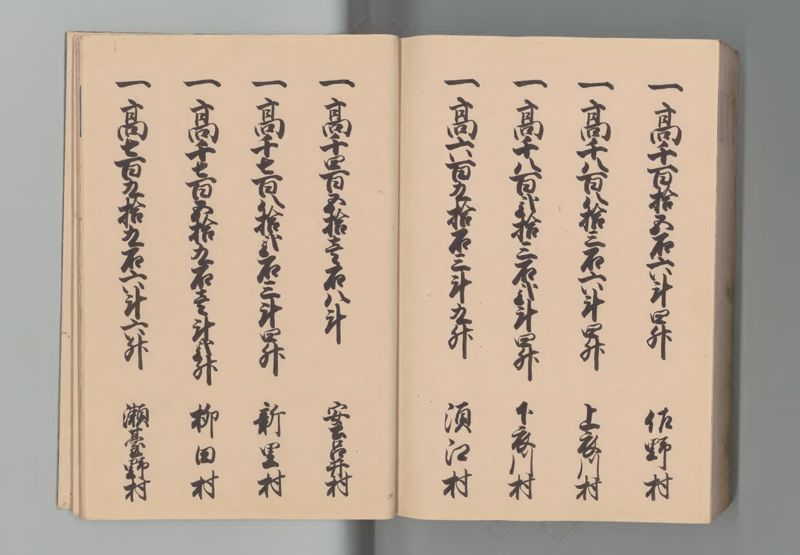 一高千百拾五石六斗四升 佐野村
一高千八百八拾三石六斗四升 上衣川村
一高千八百弐拾三石弐斗四升 下衣川村
一高六百九拾石三斗九升 須江村
一高千四百五拾壱石八斗 安呂井村
一高千七百八拾弐石三斗四升 新里村
一高千七百五拾九石壱斗弐升 柳田村
一高七百九拾九石六斗六升 瀬台野村